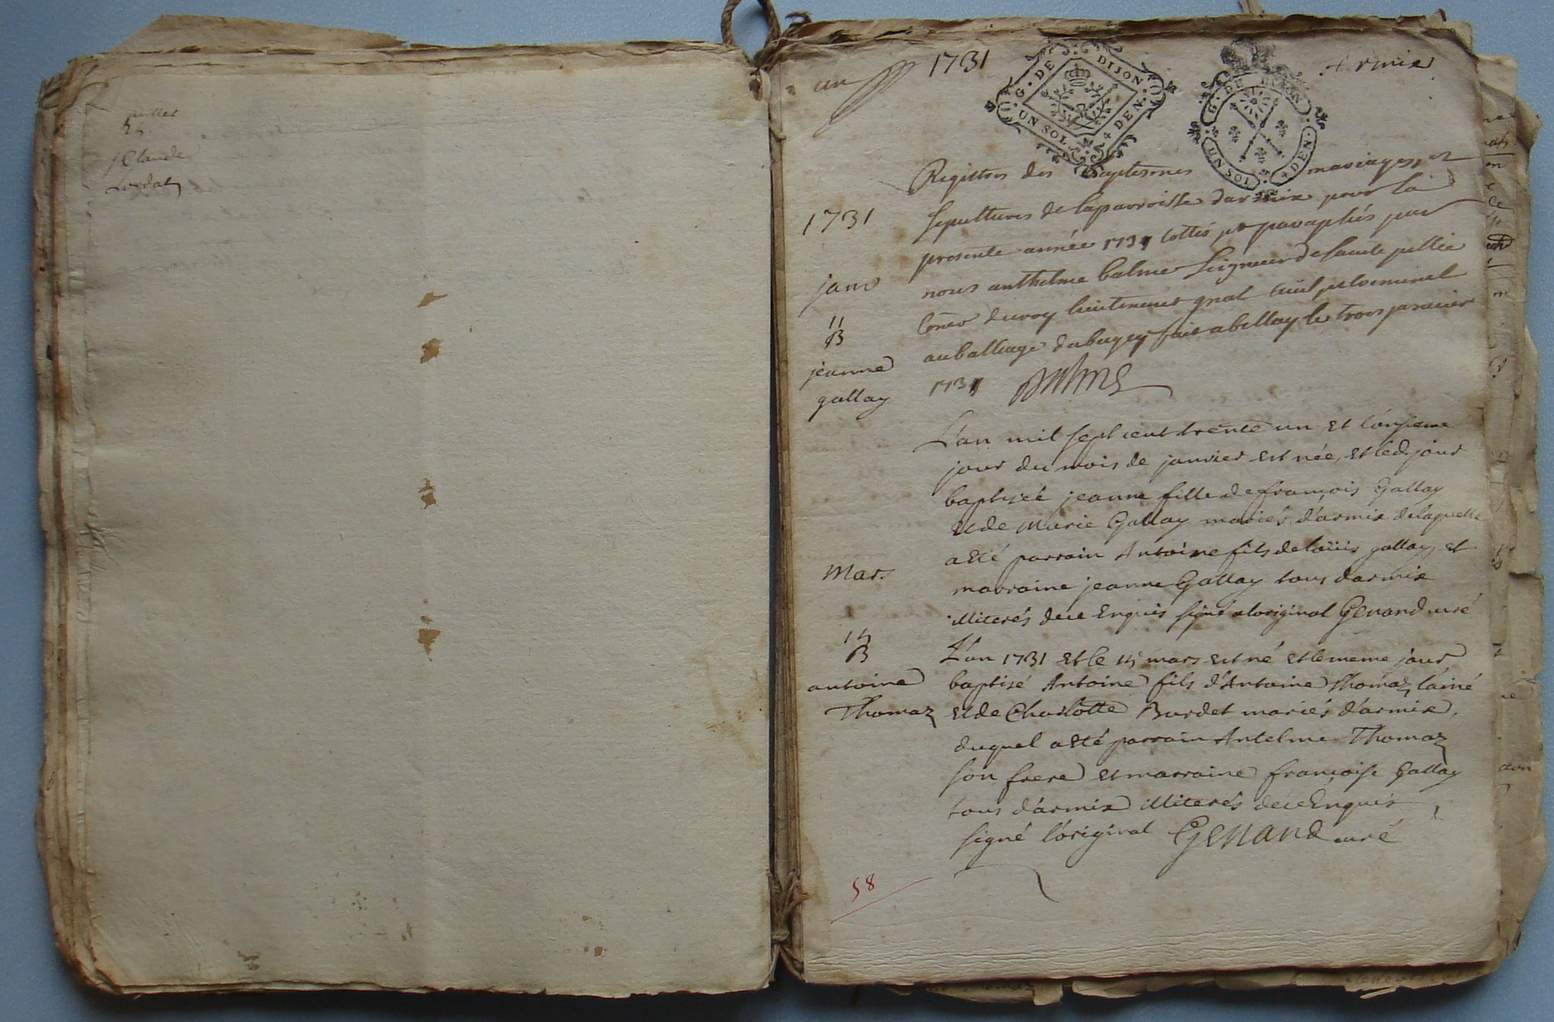 juillet
Claude
un
1731
Armix
G. DE DIJON.
UN SOL. 4 DEN.
G. DE DIJON
UN SOL. 4 DEN.
Registres des baptesmes mariages et
sepultures de la parroisse darmix pour la
presente année 1731 cottés et paraphés par
nous anthelme balme seigneur de sainte jullie
Coner du roy lieutenant gnal civil et criminel
au balliage du bugey fait a bellay le trois janvier
1731 Balme
1731
janv
11
B
jeanne
gallay
L'an mil sept cent trente un et l'onzieme
jour du mois de janvier est née, et led jour
baptisée jeanne fille de françois Gallay
et de Marie Gallay mariés d'armix de laquelle
a eté parrain Antoine fils de louis gallay et
marraine jeanne Gallay tous d'armix
illiterés de ce Enquis signé a l'original Genand curé
Mars
14
B
antoine
Thomaz
L'an 1731 et le 14 mars est né et le meme jour
baptisé Antoine fils d'Antoine Thomaz lainé
et de Charlotte Burdet mariés d'armix,
duquel a eté parrain Antelme Thomaz
son frere et marraine françoise Gallay
tous d'armix illiterés de ce Enquis
signé l'original Genand curé
58